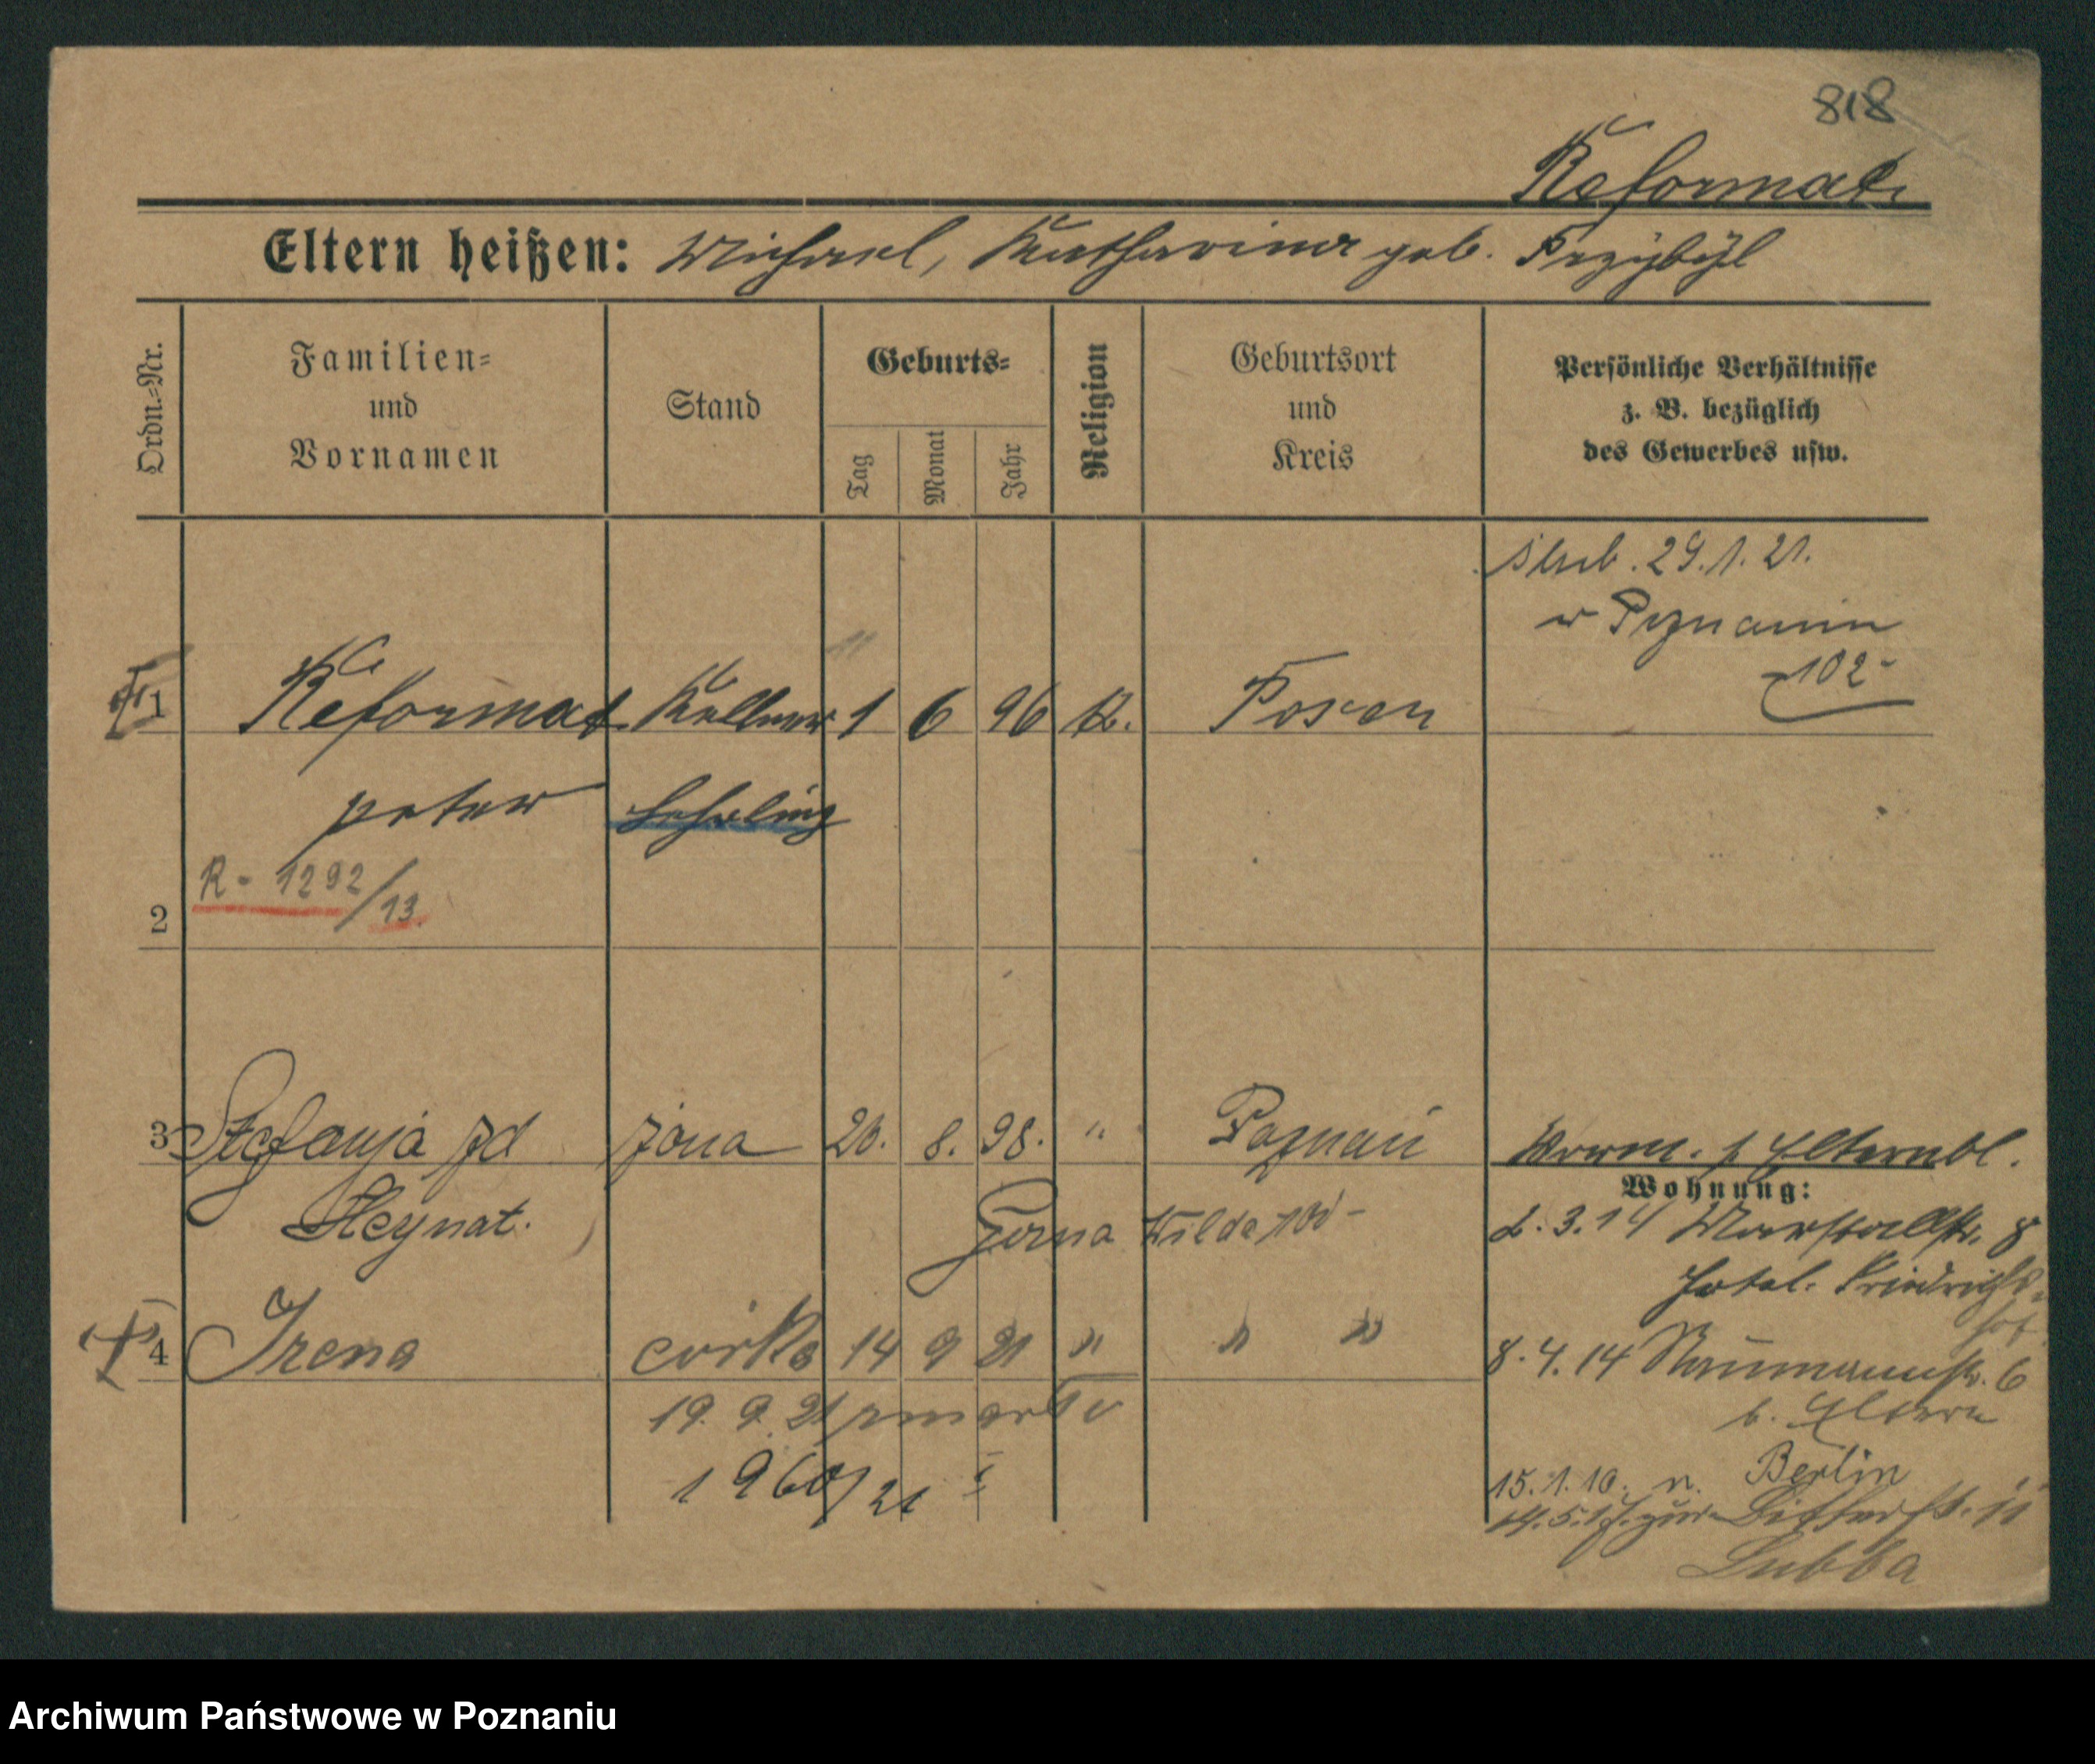 818
Reformat.
Eltern heißen: Michael, Katharina geb. Przybyl
Ordn.=Nr.
Familien=
und
Vornamen
Stand
Geburts=
Tag
Monat
Jahr
Religion
Geburtsort
und
Kreis
Persönliche Verhältnisse
z. B. bezüglich
des Gewerbes usw.
ślub. 29.1.21.
w Poznaniu
102
1 Reformat Kellner 1 6 96 k. Posen
Peter Lehrling
R - 1292/13.
2
3 Stefanja zd żona 20. 8. 98. " Poznań
Vorm. s. Elternbl.
Heynat.
Górna Wilda
Wohnung:
2.3.14 Marstallstr. 8
Hotel. Friedrichs-
hof
4 Irena córka 14 9 21 " " "
8.4.14 Naumannstr. 6
b. Eltern
19. 9. 21 zmarła
1960/21
15.1.10. n. Berlin
Lubba
Archiwum Państwowe w Poznaniu